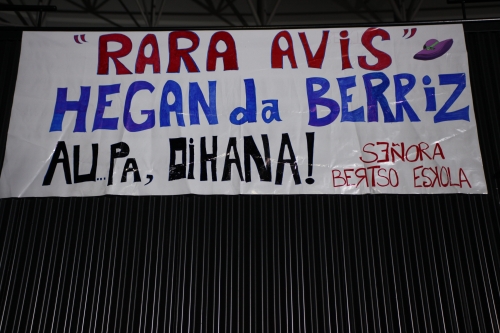 "RARA AVIS"
HEGAN da BERRIZ
AU...Pa, OIHANA!
SEÑORA
BERTSO ESKOLA